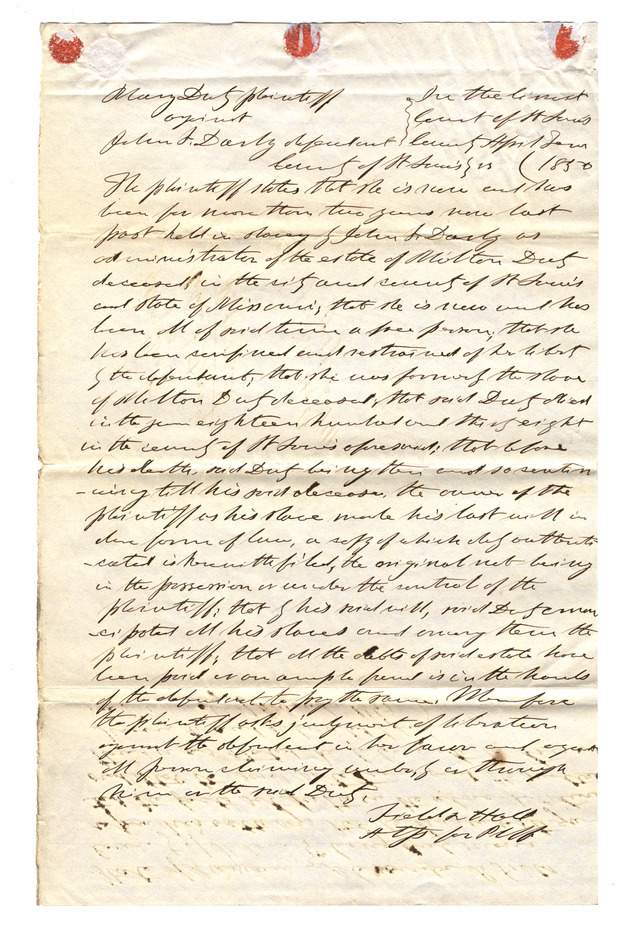 Mary Duty plaintiff In the Circuit
against Court of St Louis
John F. Darby defendant County April Term
County of St Louis ss (1850
The plaintiff states that she is now and has
been for more than two years now last
past held in slavery by John F. Darby as
administrator of the estate of Milton Duty
deceased, in the city and county of St Louis
and state of Missouri, that she is now and has
been all of said time a free person, that she
has been confined and restrained of her liberty
by the defendant, that she was formerly the slave
of Milton Duty deceased, that said Duty died
in the year eighteen hundred and thirty eight
in the county of St Louis aforesaid, that before
his death, said Duty being then and so contin
-uing till his said decease, the owner of the
plaintiff as his slave made his last will in
due form of law, a copy of which duly authenti
-cated is herewith filed, the original not being
in the possession or under the control of the
plaintiff; that by his said will, said Duty eman
-cipated all his slaves and among them the
plaintiff; that all the debts of said estate have
been paid or an ample fund is in the hands
of the defendant to pay the same. Wherefore
the plaintiff asks judgment of liberation
against the defendant in her favor and against
all persons claiming under, by or through
him or the said Duty.
Field & Hall
Attys for Plff